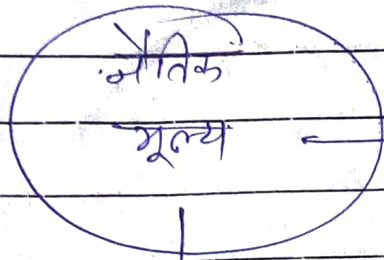 नैतिक
मूल्य